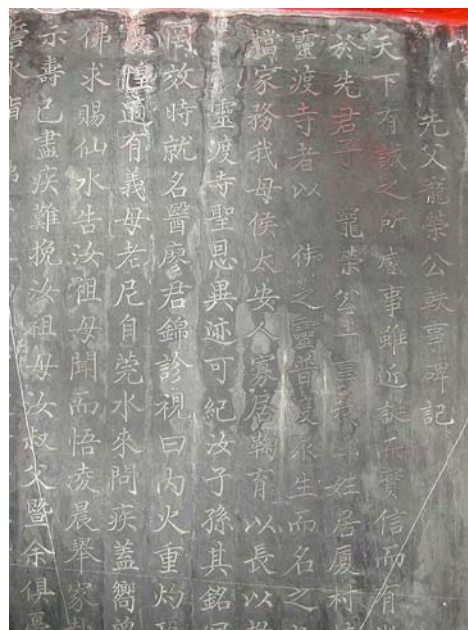 先父寵榮公軼事碑記
天下有誠之所感事雖近誕乎實信而有
於先君子寵榮公 姓居廈村
靈渡寺者以佛之靈普度眾生而名之
家務我母侯太安人寡居鞠育以長以
靈渡寺聖恩異迹可紀汝子孫其銘
罔效時就名醫廖君錦診視曰內火重灼
惶適有義母老尼自莞水來問疾蓋嚮
佛求賜仙水告汝祖母聞而悟凌晨舉家
示壽已盡疾難挽汝祖母汝叔父暨余俱